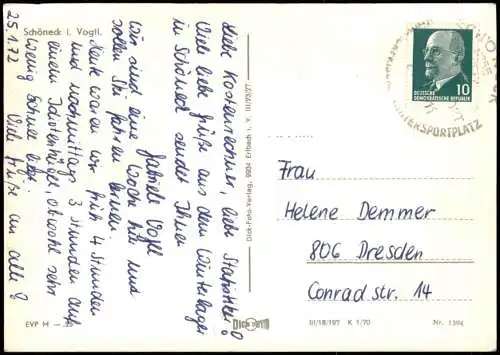 Schöneck i. Vogtl.
25.1.72
Liebe Kostenrechner, liebe Statistiker!
Viele liebe Grüße aus dem Winterlager
in Schöneck sendet Ihnen
Gabriele Vogl
Wir sind eine Woche hier und
sollen Ski fahren lernen.
Heute waren wir früh 4 Stunden
und nachmittags 3 Stunden auf
einem Idiotenhügel, obwohl sehr
wenig Schnee liegt.
Viele Grüße an alle!
EVP M —,25
Dick-Foto-Verlag, 9934 Erlbach i. V. III/23/27
DICK FOTO
10
DEUTSCHE
DEMOKRATISCHE REPUBLIK
WINTERSPORTPLATZ
Frau
Helene Demmer
806 Dresden
Conrad str. 14
III/18/197 K 1/70
Nr.